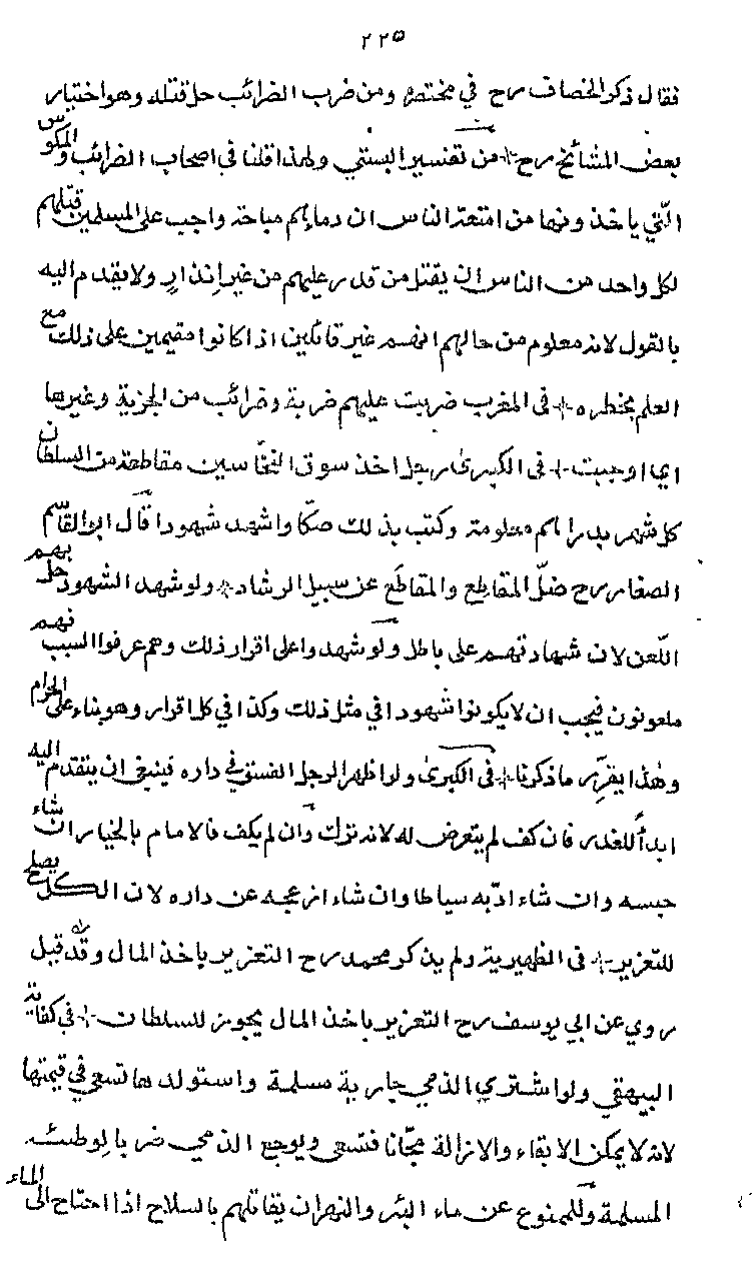 ٢٢٥
فقال ذكر الخصاف رح في مختصره ومن ضرب الضرائب حل قتله وهو اختيار
بعض المشائخ رح من تفسير البستي ولهذا قلنا في اصحاب الضرائب والمكوس
التي ياخذونها من امتعة الناس ان دماءهم مباحة واجب على المسلمين قتلهم
لكل واحد من الناس ان يقتل من قدر عليهم من غير إنذارٍ ولا يقدم اليه
بالقول لانه معلوم من حالهم انهم غير قابلين اذا كانوا مقيمين على ذلك مع
العلم بخطره في المغرب ضربت عليهم ضريبة وضرائب من الجزية وغيرها
اي اوجبت في الكبرى رجل اخذ سوق النخّاسين مقاطعة من السلطان
كل شهر بدراهم معلومة وكتب بذلك صكّا واشهد شهودا قال ابو القاسم
الصفار رح ضلّ المقاطِع والمقاطَع عن سبيل الرشاد ولو شهد الشهود حل بهم
اللّعن لان شهادتهم على باطل ولو شهدوا على اقرار ذلك وهم عرفوا السبب فهم
ملعونون فيجب ان لا يكونوا شهودا في مثل ذلك وكذا في كل اقرار وهو بناء على الحرام
وهذا يقرّر ما ذكرنا في الكبرى ولو اظهر الرجل الفسق في داره فينبغي ان يتقدم اليه
ابدأً للعذر فان كف لم يتعرض له لانه ترك وان لم يكف فالامام بالخيار ان شاء
حبسه وان شاء ادّبه سياطا وان شاء ازعجه عن داره لان الكل يصلح
للتعزير في الظهيرية ولم يذكر محمد رح التعزير باخذ المال وقد قيل
روي عن ابي يوسف رح التعزير باخذ المال يجوز للسلطان في كفاية
البيهقي ولو اشترى الذمي جارية مسلمة واستولدها تسعى في قيمتها
لانه لا يمكن الابقاء والازالة مجّانا فتسعى ويوجع الذمي ضربا لوطئه
المسلمة وللممنوع عن ماء البئر والنهر ان يقاتلهم بالسلاح اذا احتاج الى الماء